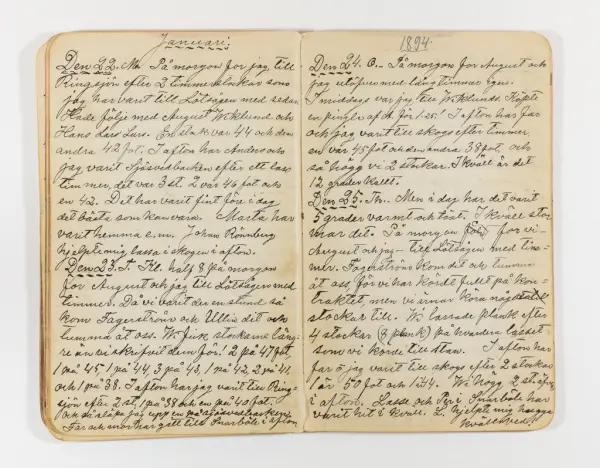 Januari.
Den 22. M. På morgon for jag till
Ringsjön efter 2 timmerstockar som
jag har varit till Lötsågen med sedan
Hade följe med August Wiklund och
Hans Lars Lars. En stock var 44 och den
andra 42 fot. I afton har Anders och
jag varit Sjösvedbacken efter ett lass
timmer, det var 3 st. 2 var 46 fot och
en 42. Det har varit fint före i dag
det bästa som kan vara. Marta har
varit hemma e.m. Johan Rönnberg
hjelpte mig lassa i skogen i afton.
Den 23. T. Kl. half 8 på morgon
for August och jag till Lötsågen med
timmer. Då vi varit der en stund så
kom Fagerström och Ullis dit och
tumma åt oss. Vi fick stockarne läng-
re än vi skrifvit dem för! 2 på 47 fot,
1 på 45, 1 på 44, 3 på 43, 1 på 42, 2 på 41
och 1 på 38. I afton har jag varit till Ring-
sjön efter 2 st, 1 på 38 och en på 40 fot.
Och så jag upp en på
Far och mor har gått till Snarböle i afton
1894.
Den 24. O. - På morgon for August och
jag med lång timmer igen.
I middags var jag till Wiklunds. Köpte
en pingla af för 1,25! I afton har far
och jag varit till skogs efter timmer
en var 45 fot och den andra 38 fot, och
så högg vi 2 stockar. I kväll är det
12 grader kallt.
Den 25. Th. Men i dag har det varit
5 grader varmt och töat. I kväll stor-
mar det. På morgon for vi -
August och jag - till Lötsågen med tim-
mer. Fagerström kom dit och tumma
åt oss, för vi har kördt fullt på kon-
traktet, men vi ärnar köra några
stockar till. Vi lassade plank efter
4 stockar (8 plank) på hvardera lasset
som vi körde till stan. I afton har
far o jag varit till skogs efter 2 stockar
1 är 50 fot och 1 44. Vi högg 2 st.
i afton. Lasse och Per i Snarböle har
varit hit i kväll. L. hjelpte mig hugga
kvällsved!